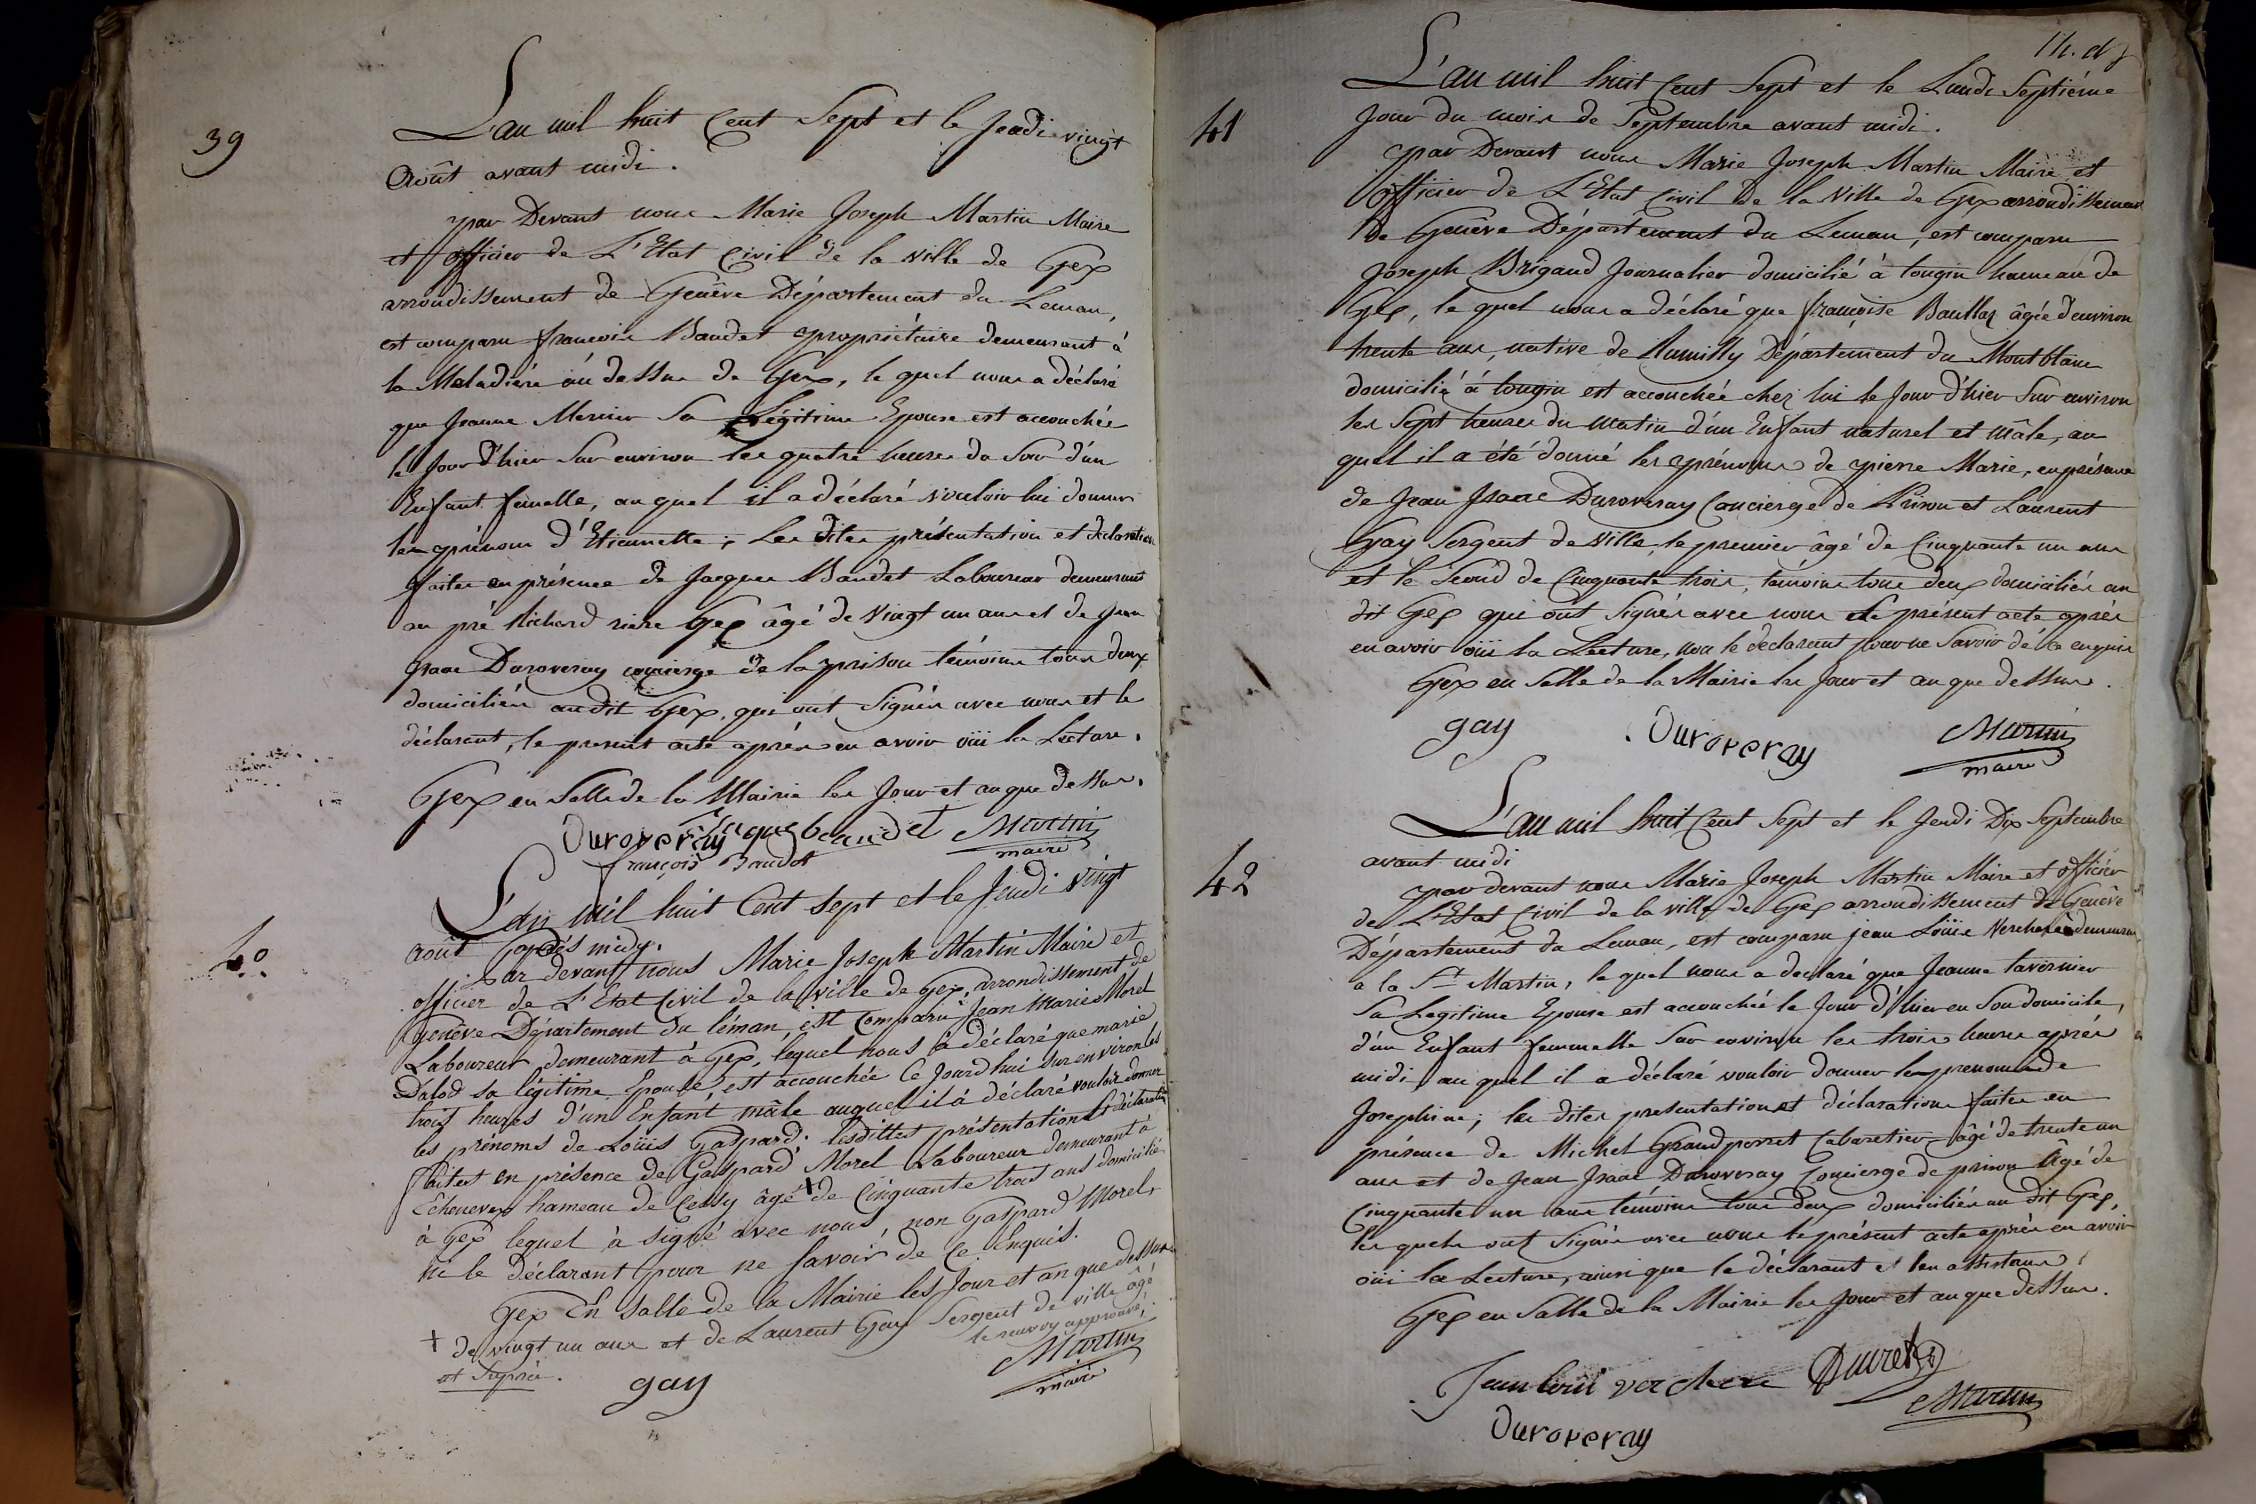 39
L'an mil huit Cent Sept et le Jeudi vingt
Août avant midi.
par Devant nous Marie Joseph Martin Maire
et officier de L'Etat Civil de la Ville de Gex
arrondissement de Genêve Département du Leman,
est comparu françois Baudet propriétaire demeurant à
la Maladière au dessus de Gex, le quel nous a déclaré
que Jeanne Mercier Sa Légitime Epouse est accouchée
le Jour d'hier Sur environ les quatre heures du Soir d'un
Enfant femelle, au quel il a déclaré vouloir lui donner
les prénom d'Etiennette; Les dites présentation et déclaration
faites en présence de Jacques Baudet Laboureur demeurant
au pré Richard rière Gex âgé de Vingt un ans et de Jean
Isaac Duroveray concierge de la prison témoins tous deux
domiciliés au dit Gex, qui ont Signés avec nous et le
déclarant, le present acte après en avoir oüi la Lecture.
Gex en Salle de la Mairie les Jour et an que dessus.
Duroveray Jaque baudet Martin
françois Baudet maire
40
L'an mil huit Cent sept et le Jeudi vingt
août après midy.
Par devant nous Marie Joseph Martin Maire et
officier de L'Etat Civil de la ville de Gex, arrondissement de
Genêve Département du léman, est comparu Jean Marie Morel
Laboureur demeurant à Gex, lequel nous à déclaré que marie
Dalod sa légitime Epouse est accouchée Ce Jourd'hui sur environ les
trois heures d'un Enfant mâle auquel il à déclaré vouloir donner
les prénoms de Loüis Gaspard. lesdittes présentation et déclaration
faites en présence de Gaspard Morel Laboureur demeurant à
Echenevex hameau de Cessy âgé + de Cinquante trois ans domicilié
à Gex lequel à signé avec nous, non Gaspard Morel,
ni le Déclarant pour ne savoir de Ce Enquis.
Gex En salle de la Mairie les Jour et an que dessus
+ de vingt un ans et de Laurent Gay Sergent de ville âgé
le renvoy approuvé,
gay Martin
maire
41
L'an mil huit Cent Sept et le Lundi Septiéme
Jour du mois de Septembre avant midi.
par Devant nous Marie Joseph Martin Maire et
officier de L'Etat Civil de la Ville de Gex arrondissement
de Genêve Département du Leman, est comparu
Joseph Brigand Journalier domicilié à tougin hameau de
Gex, le quel nous a déclaré que françoise Boullaz âgée d'environ
trente ans, native de Rumilly Département du Montblanc
domicilié à tougin est accouchée chez lui le Jour d'hier Sur environ
les Sept heures du matin d'un Enfant naturel et mâle, au
quel il a été donné les prénoms de pierre Marie, en présence
de Jean Isaac Duroveray Concierge de Prison et Laurent
Gay Sergent de Ville, le premier âgé de Cinquante un ans
et le Second de Cinquante trois, témoins tous deux domiciliés au
dit Gex qui ont Signés avec nous le présent acte après
en avoir oüi la Lecture, non le déclarant pour ne Savoir de ce enquis
Gex en Salle de la Mairie les Jour et an que dessus.
gay Duroveray Martin
maire
42
L'an mil huit Cent Sept et le Jeudi Dix Septembre
avant midi
par devant nous Marie Joseph Martin Maire et officier
de L'Etat Civil de la ville de Gex arrondissement de Genêve
Département du Leman, est comparu jean Loüis Verchere demeurant
a la St Martin, le quel nous a declaré que Jeanne tavernier
Sa Legitime Epouse est accouchée le Jour d'hier en Son domicile,
d'un Enfant femmelle Sur environ les trois heures après
midi, au quel il a déclaré vouloir donner les prenoms de
Josephine; les dites presentation et déclaration faites en
présence de Michel Grandperret Cabaretier âgé de trente un
ans et de Jean Isaac Duroveray Concierge de prison âgé de
Cinquante un ans témoins tous deux domiciliés au dit Gex,
les quels ont Signés avec nous le présent acte après en avoir
oüi la Lecture, ainsi que le déclarant
Gex en Salle de la Mairie les Jour et an que dessus.
Jean Loui verchere Martin
Duroveray